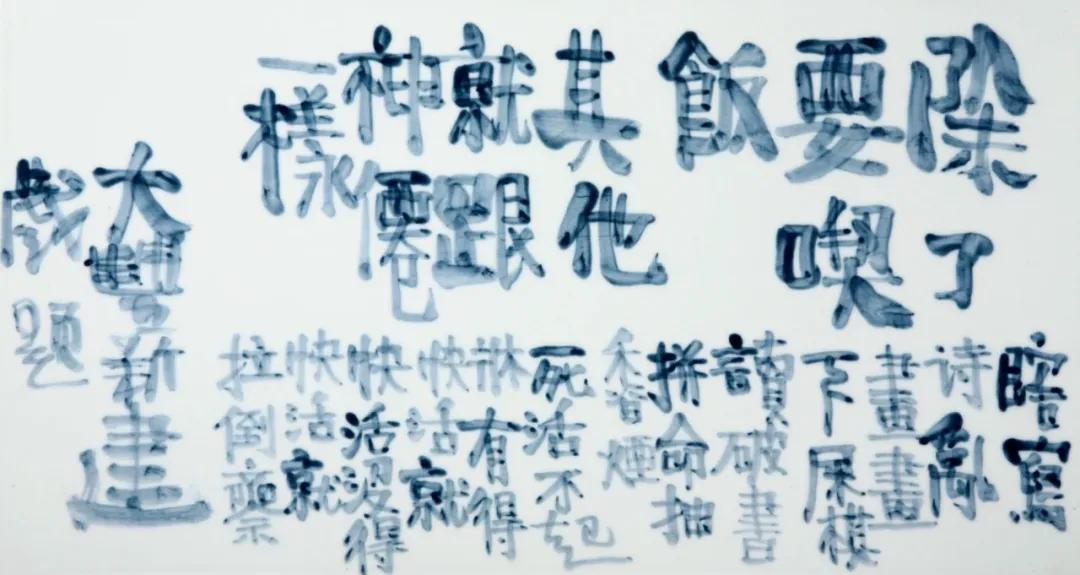 除了
要喫
飯
其他
就跟
神僊
一樣
瞎寫
诗亂
畫畫
下屎棋
讀破書
拼命抽
香煙
死活不起
牀有得
快活就
快活沒得
快活就
拉倒
大豐新建
戲题